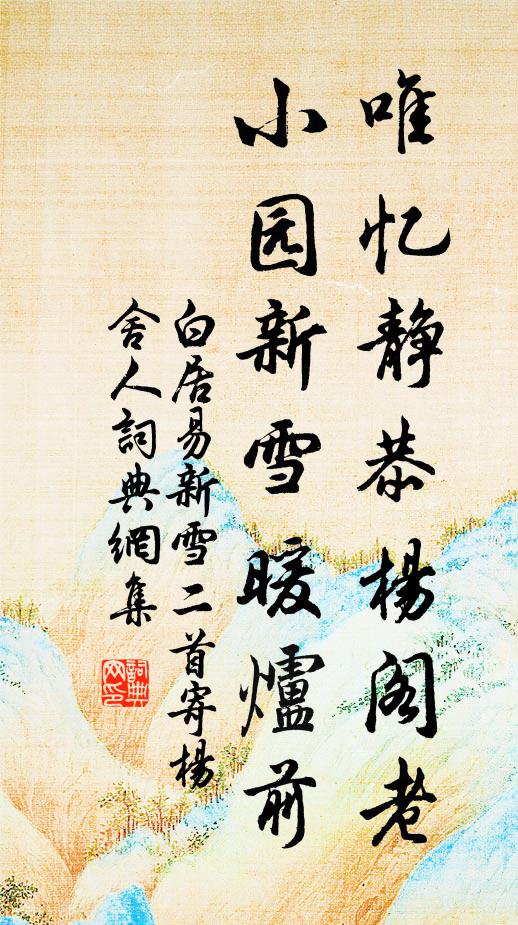 唯忆静恭楊阁老
小园新雪暖爐前
白居易新雪二首寄楊
舍人詞典網集
詞典网印